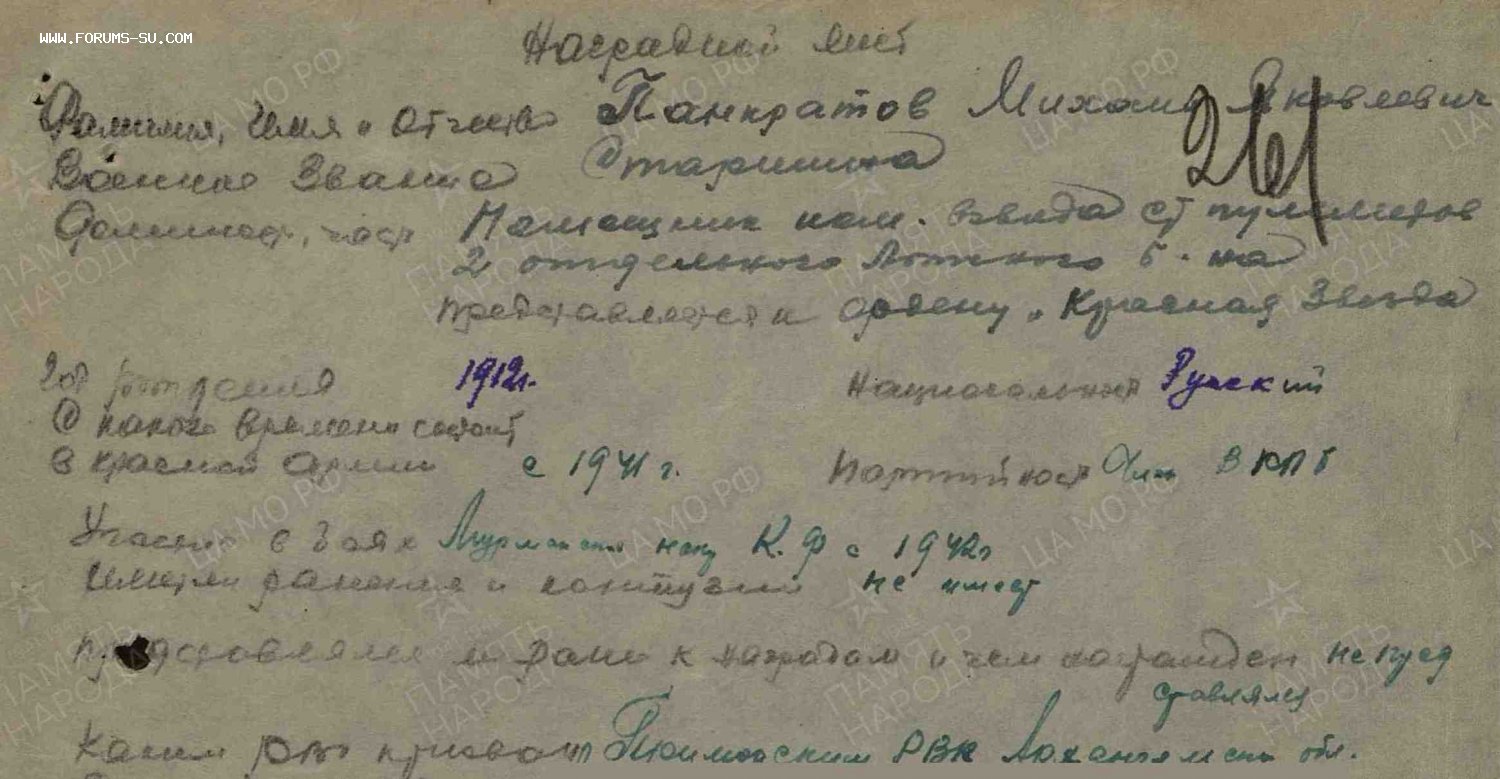 WWW.FORUMS-SU.COM
Наградной лист
Фамилия, Имя и Отчество Панкратов Михаил Яковлевич
261
Военное Звание Старшина
Должност, част Помощник ком. взвода ст пулеметов
2 отдельного Лыжного б-на
представляется к ордену "Красная Звезда
Год рождения 1912г. Национальност Русский
С какого времени состоит
в красной армии с 1941 г. Партийност Член ВКПб
Участие в боях Мурманском напр К.Ф с 1942г
Имеет ли ранения и контузии не имеет
представлялся ли ранее к наградам и чем награжден не пред
ставлялся
Каким рвк призван РВК Архангельской обл.
ЦАМО РФ
ПАМЯТЬ НАРОДА